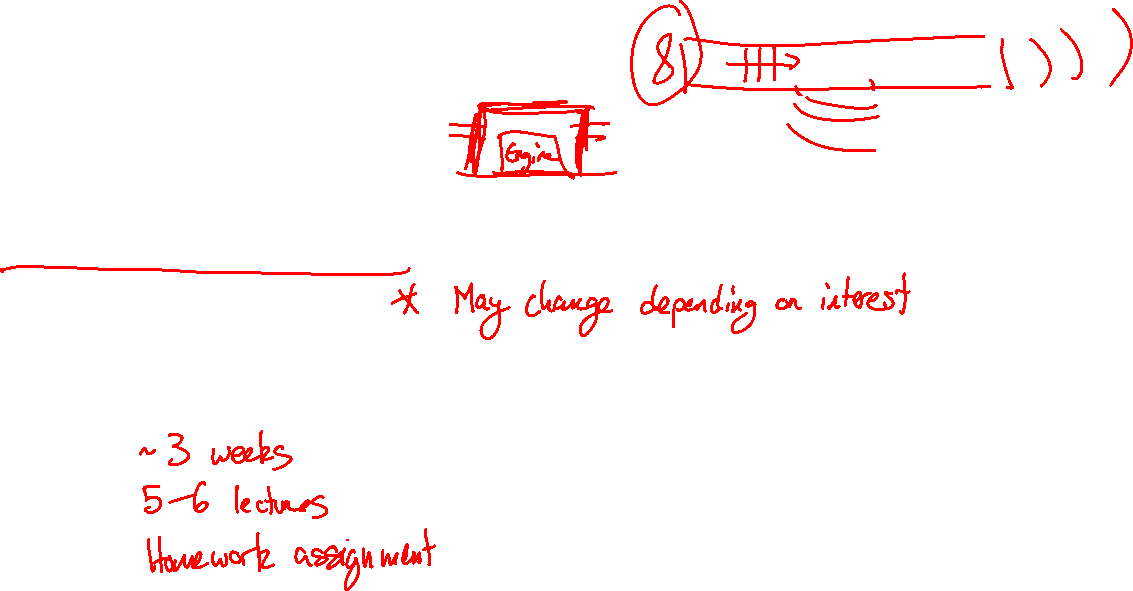 8
Engine
* May change depending on interest
~ 3 weeks
5-6 lectures
Homework assignment